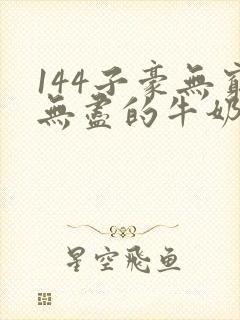 144子豪無窮
無盡的牛奶
星空飛鱼